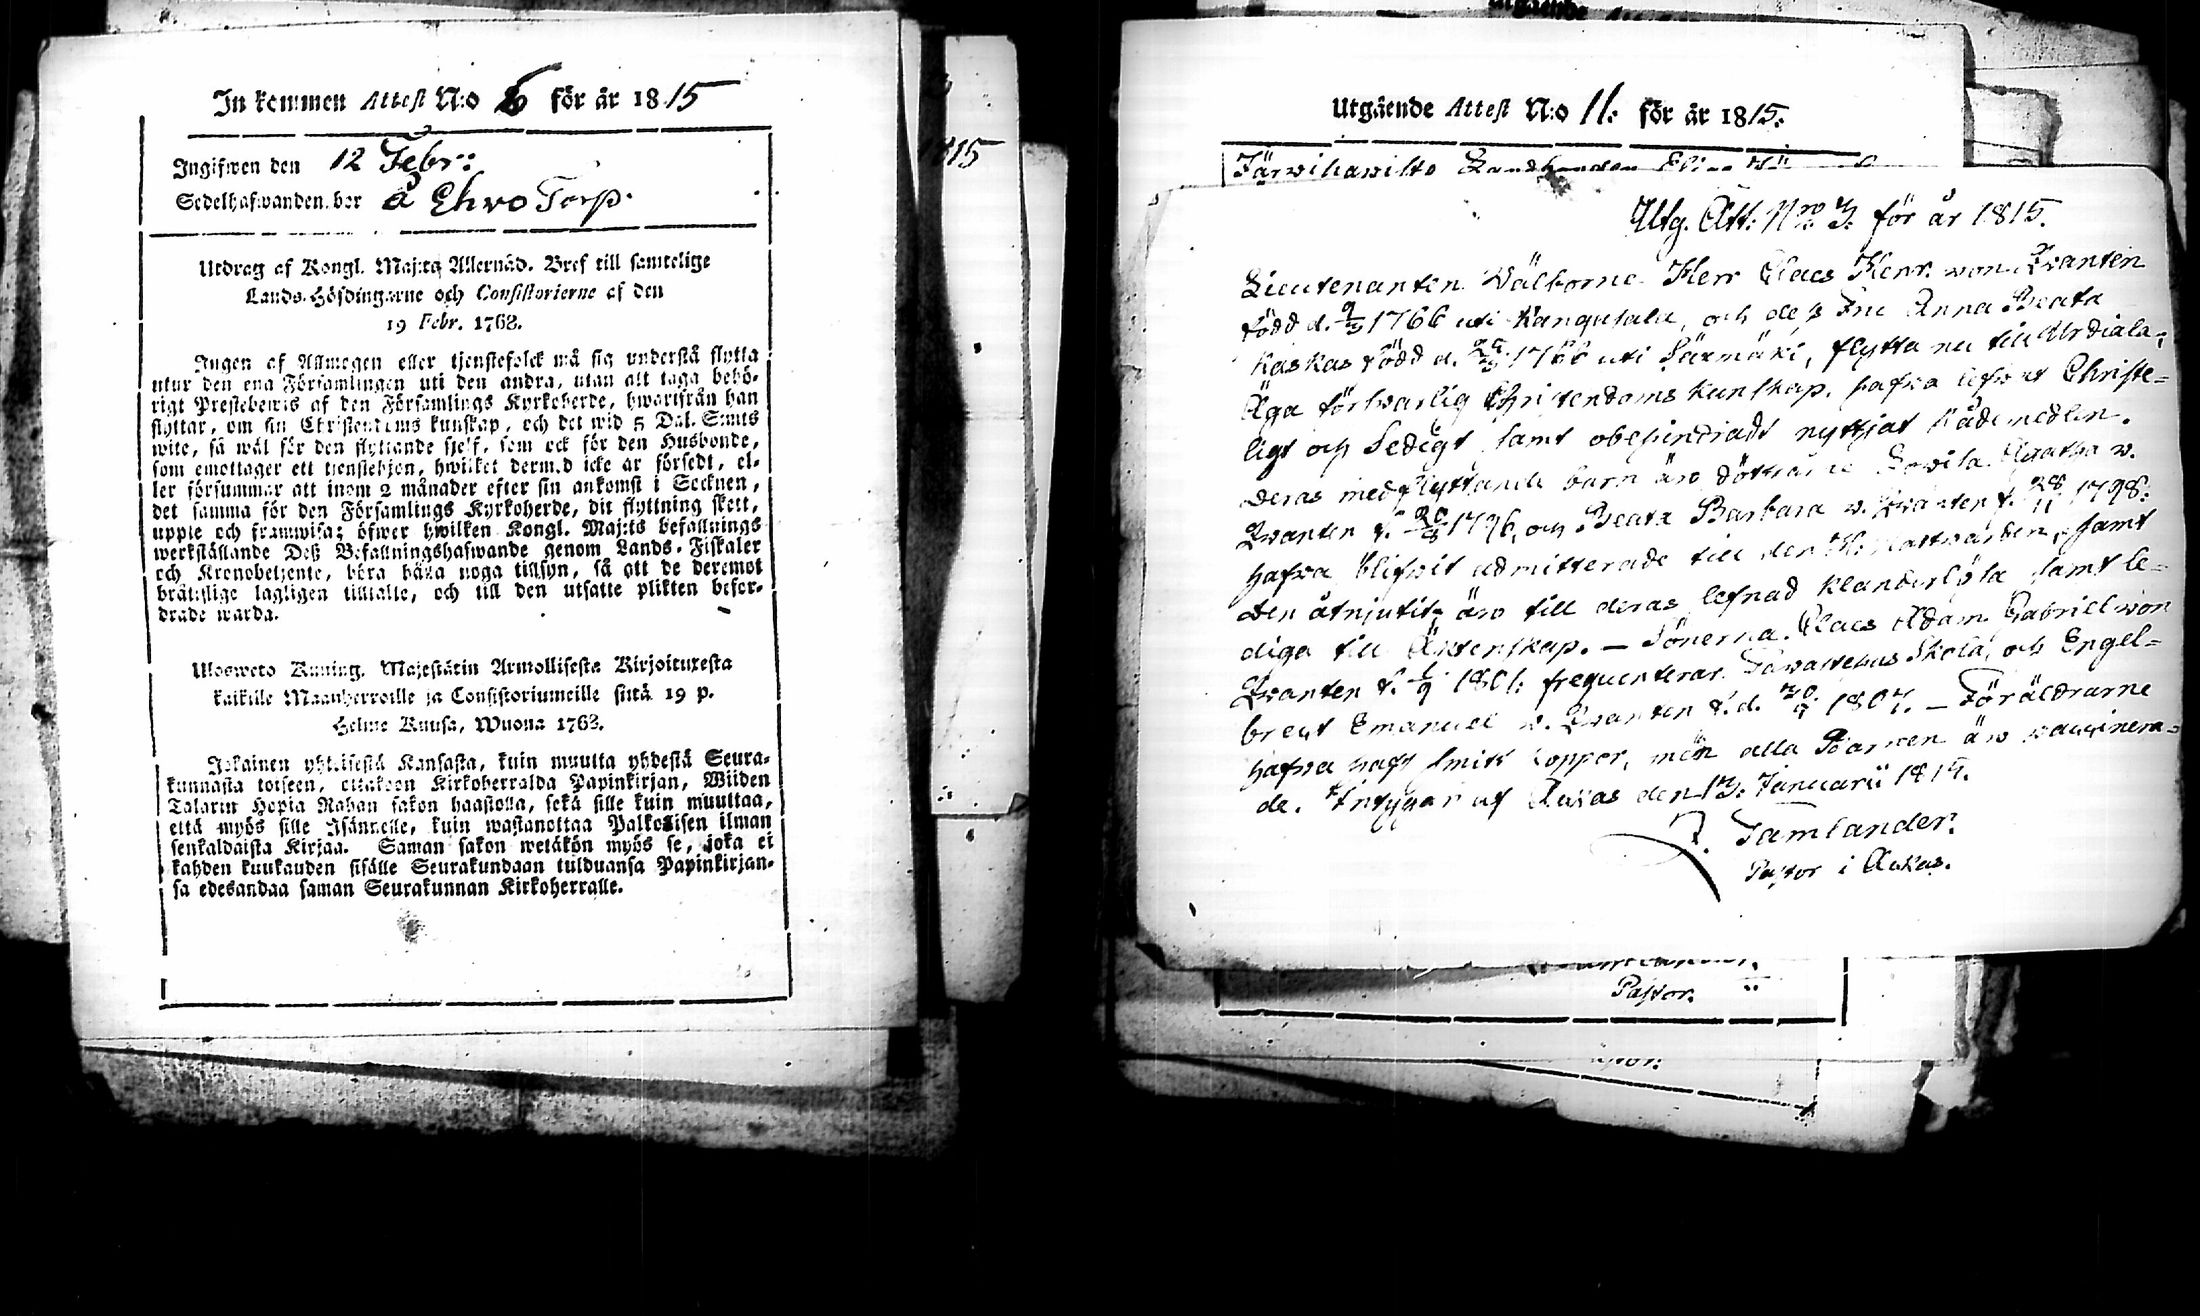 In kommen Attest N:o 6 för år 1815
Ingifwen den 12 Febr:
Sedelhafwanden bor å Ehro Torp.
Utdrag af Kongl. Maj:ts Allernåd. Bref till samtelige
Lands-Höfdingarne och Consistorierne af den
19 Febr. 1768.
Ingen af Allmogen eller tjenstefolck må sig understå flytta
utur den ena Församlingen uti den andra, utan att taga behö-
rigt Prestebewis af den Församlings Kyrkoherde, hwarifrån han
flyttar, om sin Christendoms kunskap, och det wid 5 Dal. Smts
wite, så wäl för den flyttande sjelf, som ock för den Husbonde,
som emottager ett tjenstehjon, hwilket dermed icke är försedt, el-
ler försummar att inom 2 månader efter sin ankomst i Socknen,
det samma för den Församlings Kyrkoherde, dit flyttning skett,
uppte och framwisa; öfwer hwilken Kongl. Maj:ts befallnings
werkställande Deß Befallningshafwande genom Lands-Fiskaler
och Kronobetjente, böra hålla noga tillsyn, så att de deremot
brätslige lagligen tilltalte, och till den utsatte plikten befor-
drade warda.
Ulosweto Kuning. Majestätin Armollisesta Kirjoituxesta
kaikille Maanherroille ja Consistoriumeille siitä 19 p.
Helme Kuusa, Wuona 1768.
Jokainen yhteisestä Kansasta, kuin muutta yhdestä Seura-
kunnasta toiseen, ottakoon Kirkoherralda Papinkirjan, Wiiden
Talarin Hopia Rahan sakon haastolla, sekä sille kuin muuttaa,
että myös sille Isännelle, kuin wastanottaa Palkolisen ilman
senkaldaista Kirjaa. Saman sakon wetäkön myös se, joka ei
kahden kuukauden sisälle Seurakundaan tulduansa Papinkirjan-
sa edesandaa saman Seurakunnan Kirkoherralle.
1815
Utgäende Attest N:o 11: för år 1815:
Utg. Att: Nro 3. för år 1815.
Lieutenanten Wälborne Herr Claes Henr. von Qvanten
född d. 9/3 1766 uti Kangusala, och deß Fru Anna Beata
Kaskas född d. 1766 uti Säxmäki, flytta nu till Urdiala;
Äga förswarlig Christendoms kunskap, hafva lefwat Christe-
ligt och Sedigt samt obehindradt nyttjat Nådemedlen.
Deras medflyttande barn äro döttrarne Lovisa Agatha v.
Qvanten f. 1796, och Beata Barbara v. Qvanten f. 28/11 1798:
hafva blifvit admitterade till den H. Nattvarden, samt
den åtnjutit; äro till deras lefnad klanderlösa samt le-
diga till Äktenskap. — Sönerna Claes Adam Gabriel von
Qvanten f. 1/9 1801: frequenterar Tavastehus Skola, och Engel-
brekt Emanuel v. Qvanten f. d. 1807. — Föräldrarne
hafva haft smitt koppor, men alla Barnen äro vaccinera-
de. Intygar uf Ackas den 13: Januarii 1815.
J. Tamlander.
Pastor i Ackas.
Pastor.